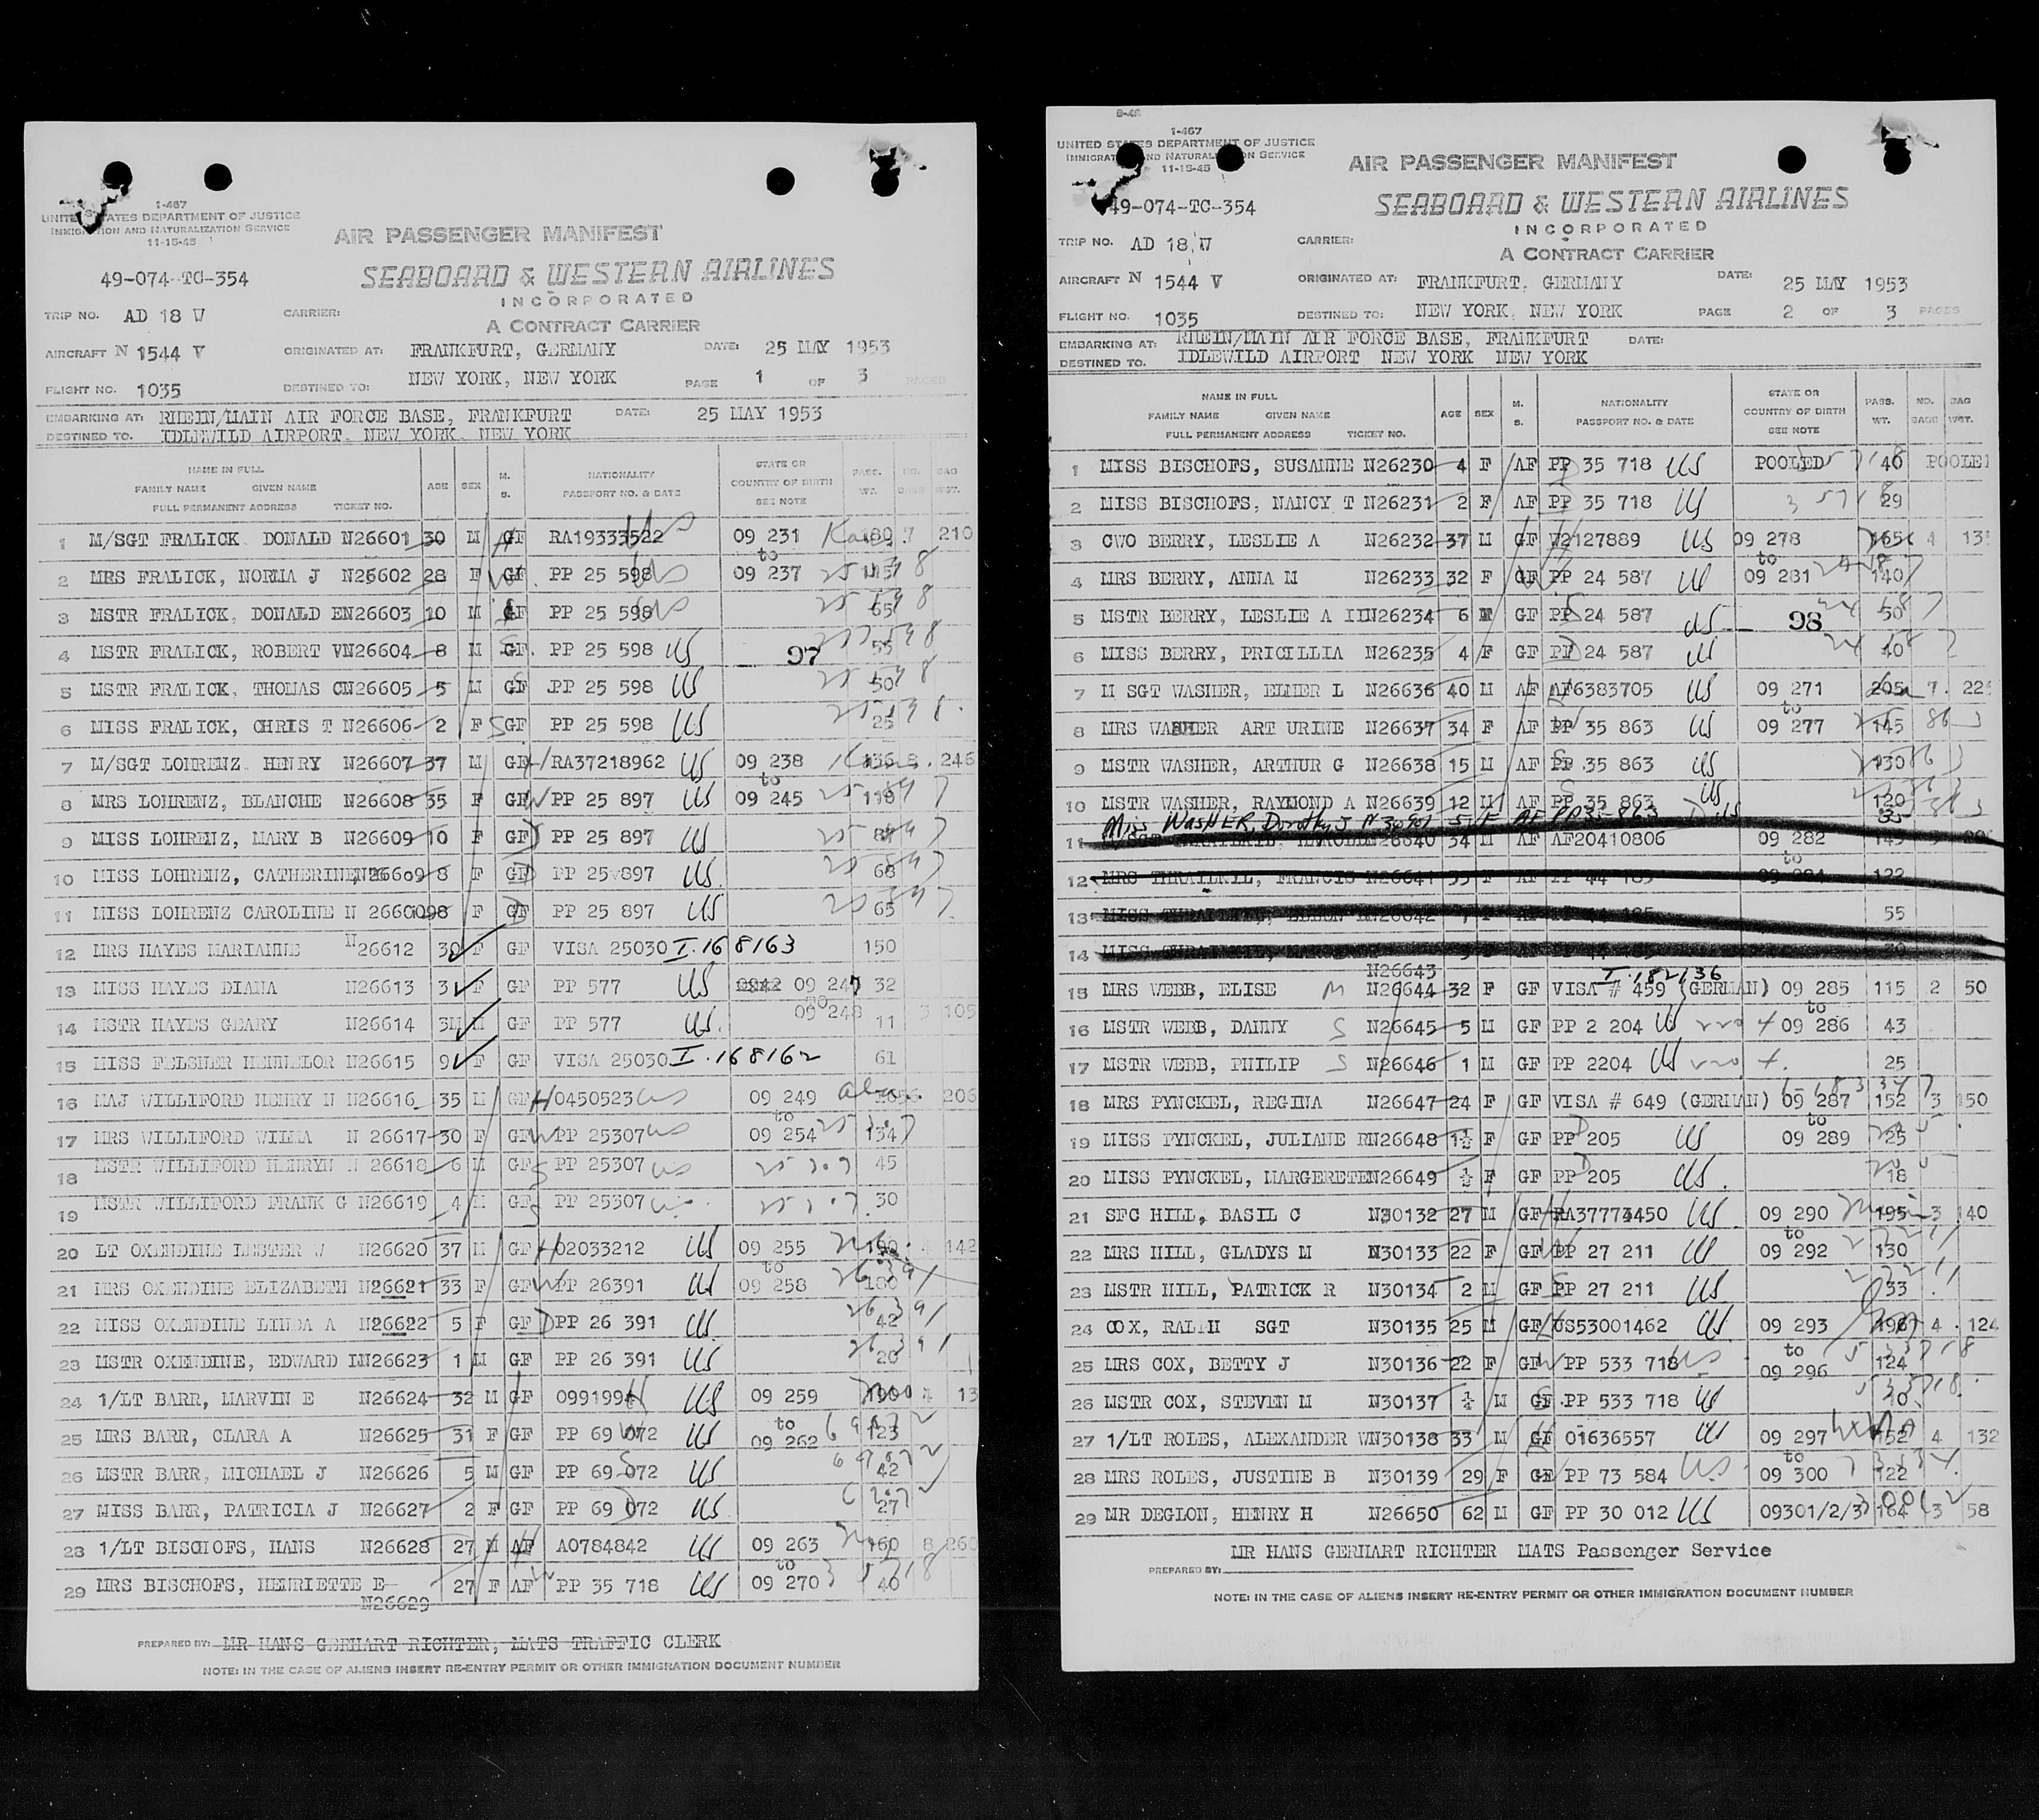 1-467
UNITED STATES DEPARTMENT OF JUSTICE
IMMIGRATION AND NATURALIZATION SERVICE
11-15-45
AIR PASSENGER MANIFEST
49-074-TC-354
SEABOARD & WESTERN AIRLINES
INCORPORATED
TRIP NO. AD 18 W CARRIER: A CONTRACT CARRIER
AIRCRAFT N 1544 V ORIGINATED AT: FRANKFURT, GERMANY DATE: 25 MAY 1953
FLIGHT NO. 1035 DESTINED TO: NEW YORK, NEW YORK PAGE 1 OF 3 PAGES
EMBARKING AT: RHEIN/MAIN AIR FORCE BASE, FRANKFURT DATE: 25 MAY 1953
DESTINED TO. IDLEWILD AIRPORT. NEW YORK. NEW YORK
NAME IN FULL FAMILY NAME GIVEN NAME FULL PERMANENT ADDRESS TICKET NO. AGE SEX M. S. NATIONALITY PASSPORT NO. & DATE STATE OR COUNTRY OF BIRTH SEE NOTE PASS. WT. NO. BAGS BAG WGT.
1 M/SGT FRALICK DONALD N26601 30 M GF RA19333522 US 09 231 180 7 210
to
2 MRS FRALICK, NORMA J N26602 28 F GF PP 25 598 US 09 237
3 MSTR FRALICK, DONALD E N26603 10 M GF PP 25 598 US 65
4 MSTR FRALICK, ROBERT V N26604 8 M GF. PP 25 598 US 97 55
5 MSTR FRALICK, THOMAS C N26605 5 M GF PP 25 598 US 50
6 MISS FRALICK, CHRIS T N26606 2 F GF PP 25 598 US 25
7 M/SGT LOHRENZ HENRY N26607 37 M GF RA37218962 US 09 238 246
to
8 MRS LOHRENZ, BLANCHE N26608 35 F GF PP 25 897 US 09 245
9 MISS LOHRENZ, MARY B N26609 10 F GF PP 25 897 US
10 MISS LOHRENZ, CATHERINE N26609 8 F GF PP 25 897 US 68
11 MISS LOHRENZ CAROLINE N F GF PP 25 897 US 65
12 MRS HAYES MARIANNE N26612 30 F GF VISA 25030 I.168163 150
13 MISS HAYES DIANA N26613 3 F GF PP 577 US 09 247 32
to
14 MSTR HAYES GEARY N26614 3M M GF PP 577 US. 09 248 11 3 105
15 MISS FELSNER HENNELOR N26615 9 F GF VISA 25030 I.168162 61
16 MAJ WILLIFORD HENRY N N26616 35 M GF H 0450523 US 09 249 206
to
17 MRS WILLIFORD WILMA N 26617 30 F GF PP 25307 US 09 254 134
18 MSTR WILLIFORD HENRYN N 26618 6 M GF PP 25307 US 25307 45
19 MSTR WILLIFORD FRANK G N26619 4 M GF PP 25307 US 25307 30
20 LT OXENDINE LESTER W N26620 37 M GF H 02033212 US 09 255 4 142
to
21 MRS OXENDINE ELIZABETH N26621 33 F GF W PP 26391 US 09 258 26391
22 MISS OXENDINE LINDA A N26622 5 F GF D PP 26 391 US 26391 42
23 MSTR OXENDINE, EDWARD L N26623 1 M GF PP 26 391 US 26391 20
24 1/LT BARR, MARVIN E N26624 32 M GF US 09 259 190 4 13
to
25 MRS BARR, CLARA A N26625 31 F GF PP 69 072 US 09 262 123
26 MSTR BARR, MICHAEL J N26626 5 M GF PP 69 072 US 42
27 MISS BARR, PATRICIA J N26627 2 F GF PP 69 072 US 27
28 1/LT BISCHOFS, HANS N26628 27 M AF AO784842 US 09 263 160 8 260
to
29 MRS BISCHOFS, HENRIETTE E N26629 27 F AF PP 35 718 US 09 270
PREPARED BY: MR HANS GERHART RICHTER, MATS TRAFFIC CLERK
NOTE: IN THE CASE OF ALIENS INSERT RE-ENTRY PERMIT OR OTHER IMMIGRATION DOCUMENT NUMBER
1-467
UNITED STATES DEPARTMENT OF JUSTICE
IMMIGRATION AND NATURALIZATION SERVICE
11-15-45
AIR PASSENGER MANIFEST
49-074-TC-354
SEABOARD & WESTERN AIRLINES
INCORPORATED
TRIP NO. AD 18 W CARRIER: A CONTRACT CARRIER
AIRCRAFT N 1544 V ORIGINATED AT: FRANKFURT, GERMANY DATE: 25 MAY 1953
FLIGHT NO. 1035 DESTINED TO: NEW YORK, NEW YORK PAGE 2 OF 3 PAGES
EMBARKING AT: RHEIN/MAIN AIR FORCE BASE, FRANKFURT DATE:
DESTINED TO. IDLEWILD AIRPORT NEW YORK NEW YORK
NAME IN FULL FAMILY NAME GIVEN NAME FULL PERMANENT ADDRESS TICKET NO. AGE SEX M. S. NATIONALITY PASSPORT NO. & DATE STATE OR COUNTRY OF BIRTH SEE NOTE PASS. WT. NO. BAGS BAG WGT.
1 MISS BISCHOFS, SUSANNE N26230 4 F AF PP 35 718 US POOLED 40
2 MISS BISCHOFS, NANCY T N26231 2 F AF PP 35 718 US 35718 29
3 CWO BERRY, LESLIE A N26232 37 M GF W2127889 US 09 278 165 4
to
4 MRS BERRY, ANNA M N26233 32 F GF PP 24 587 US 09 281 140
5 MSTR BERRY, LESLIE A III N26234 6 M GF PP 24 587 US 98 50
6 MISS BERRY, PRICILLIA N26235 4 F GF PP 24 587 US 40
7 M SGT WASHER, ELMER L N26636 40 M AF AF6383705 US 09 271 205 7
to
8 MRS WASHER ART URINE N26637 34 F AF PP 35 863 US 09 277 145
9 MSTR WASHER, ARTHUR G N26638 15 M AF PP 35 863 US 130
10 MSTR WASHER, RAYMOND A N26639 12 M AF PP 35 863 US 120
Miss WASHER, Dorothy J 5 F AF PP 35 863 D US 35
11 M/SGT 34 M AF AF20410806 09 282
to
12 MRS THRAILKIL, FRANCIS N26641
13 MISS 55
14 MISS
15 MRS WEBB, ELISE M N26643 N26644 32 F GF VISA # 459 (GERMAN) I.182136 09 285 115 2 50
to
16 MSTR WEBB, DANNY S N26645 5 M GF PP 2 204 US 09 286 43
17 MSTR WEBB, PHILIP S N26646 1 M GF PP 2204 US 25
18 MRS PYNCKEL, REGINA N26647 24 F GF VISA # 649 (GERMAN) 09 287 152 3 150
to
19 MISS PYNCKEL, JULIANE R N26648 1½ F GF PP 205 US 09 289 25
20 MISS PYNCKEL, MARGERETE N26649 ½ F GF PP 205 US. 18
21 SFC HILL, BASIL C N30132 27 M GF US 09 290 195 3 140
to
22 MRS HILL, GLADYS M N30133 22 F GF PP 27 211 US 09 292 130
23 MSTR HILL, PATRICK R N30134 2 M GF PP 27 211 US 33
24 COX, RALPH SGT N30135 25 M GF US53001462 US 09 293 4 124
to
25 MRS COX, BETTY J N30136 22 F GF PP 533 718 US 09 296 124
26 MSTR COX, STEVEN M N30137 M GF PP 533 718 US 10
27 1/LT ROLES, ALEXANDER W N30138 33 M GF 01636557 US 09 297 152 4 132
to
28 MRS ROLES, JUSTINE B N30139 29 F GF PP 73 584 US 09 300 122
29 MR DEGLON, HENRY H N26650 62 M GF PP 30 012 US 09301/2/3 164 3 58
PREPARED BY: MR HANS GERHART RICHTER MATS Passenger Service
NOTE: IN THE CASE OF ALIENS INSERT RE-ENTRY PERMIT OR OTHER IMMIGRATION DOCUMENT NUMBER